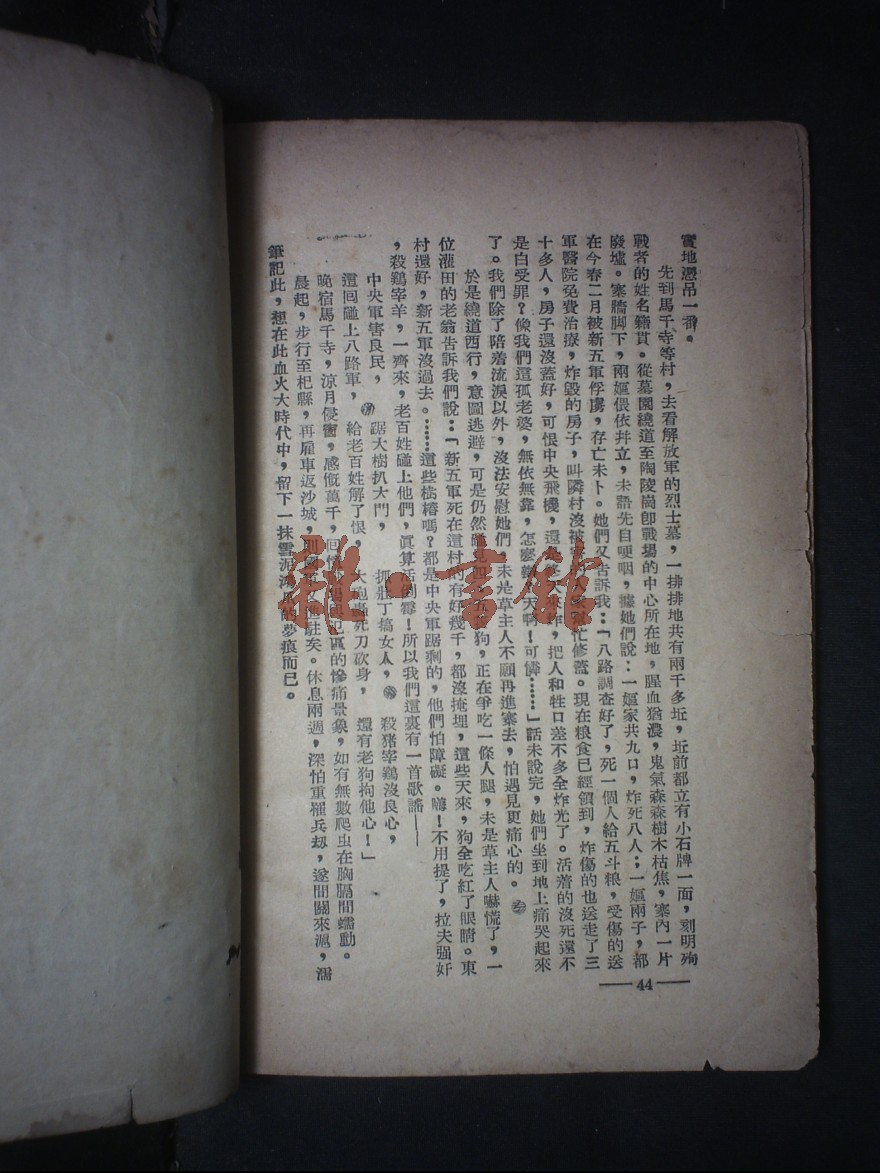 實地憑吊一番。
先到馬千寺等村，去看解放軍的烈士墓，一排排地共有兩千多坵，坵前都立有小石碑一面，刻明殉
戰者的姓名籍貫。從墓園繞道至陶陵崗卽戰場的中心所在地，腥血猶濃，鬼氣森森樹木枯焦，寨內一片
廢墟。寨牆脚下，兩嫗偎依幷立，未語先自哽咽，據她們說：一嫗家共九口，炸死八人；一嫗兩子，都
在今春二月被新五軍俘虜，存亡未卜。她們又告訴我：「八路調查好了，死一個人給五斗粮，受傷的送
軍醫院免費治療，炸毀的房子，叫隣村沒被害的人家幫忙修蓋。現在粮食已經領到，炸傷的也送走了三
十多人，房子還沒蓋好，可恨中央飛機，還是天來炸，把人和牲口差不多全炸光了。活着的沒死還不
是白受罪？像我們這孤老婆，無依無靠，怎麽辦，天啊！可憐……」話未說完，她們坐到地上痛哭起來
了。我們除了陪着流淚以外，沒法安慰她們，未是草主人不願再進寨去，怕遇見更痛心的。㊂
於是繞道西行，意圖逃避，可是仍然碰見四五狗，正在爭吃一條人腿，未是草主人嚇慌了，一
位灌田的老翁告訴我們說：「新五軍死在這村的有好幾千，都沒掩埋，這些天來，狗全吃紅了眼睛。東
村還好，新五軍沒過去。……這些樹樁嗎？都是中央軍踞剩的，他們怕障礙。嗨！不用提了，拉夫强奸
，殺鷄宰羊，一齊來，老百姓碰上他們，眞算活倒霉！所以我們這裏有一首歌謠——
中央軍害良民， 踞大樹扒大門， 抓壯丁搞女人， 殺猪宰鷄沒良心，
這回碰上八路軍， 給老百姓解了恨， 大砲轟死刀砍身， 還有老狗拘他心！」
晚宿馬千寺，涼月侵窗，感慨萬千，回憶塲與犯區的慘痛景象，如有無數爬虫在胸膈間蠕動。
晨起，步行至杞縣，再雇車返沙城，則國軍又進駐矣。休息兩週，深怕重罹兵刼，遂間關來滬，濡
筆記此，想在此血火大時代中，留下一抹雪泥鴻爪的夢痕而已。
—— 44 ——
雜·言館